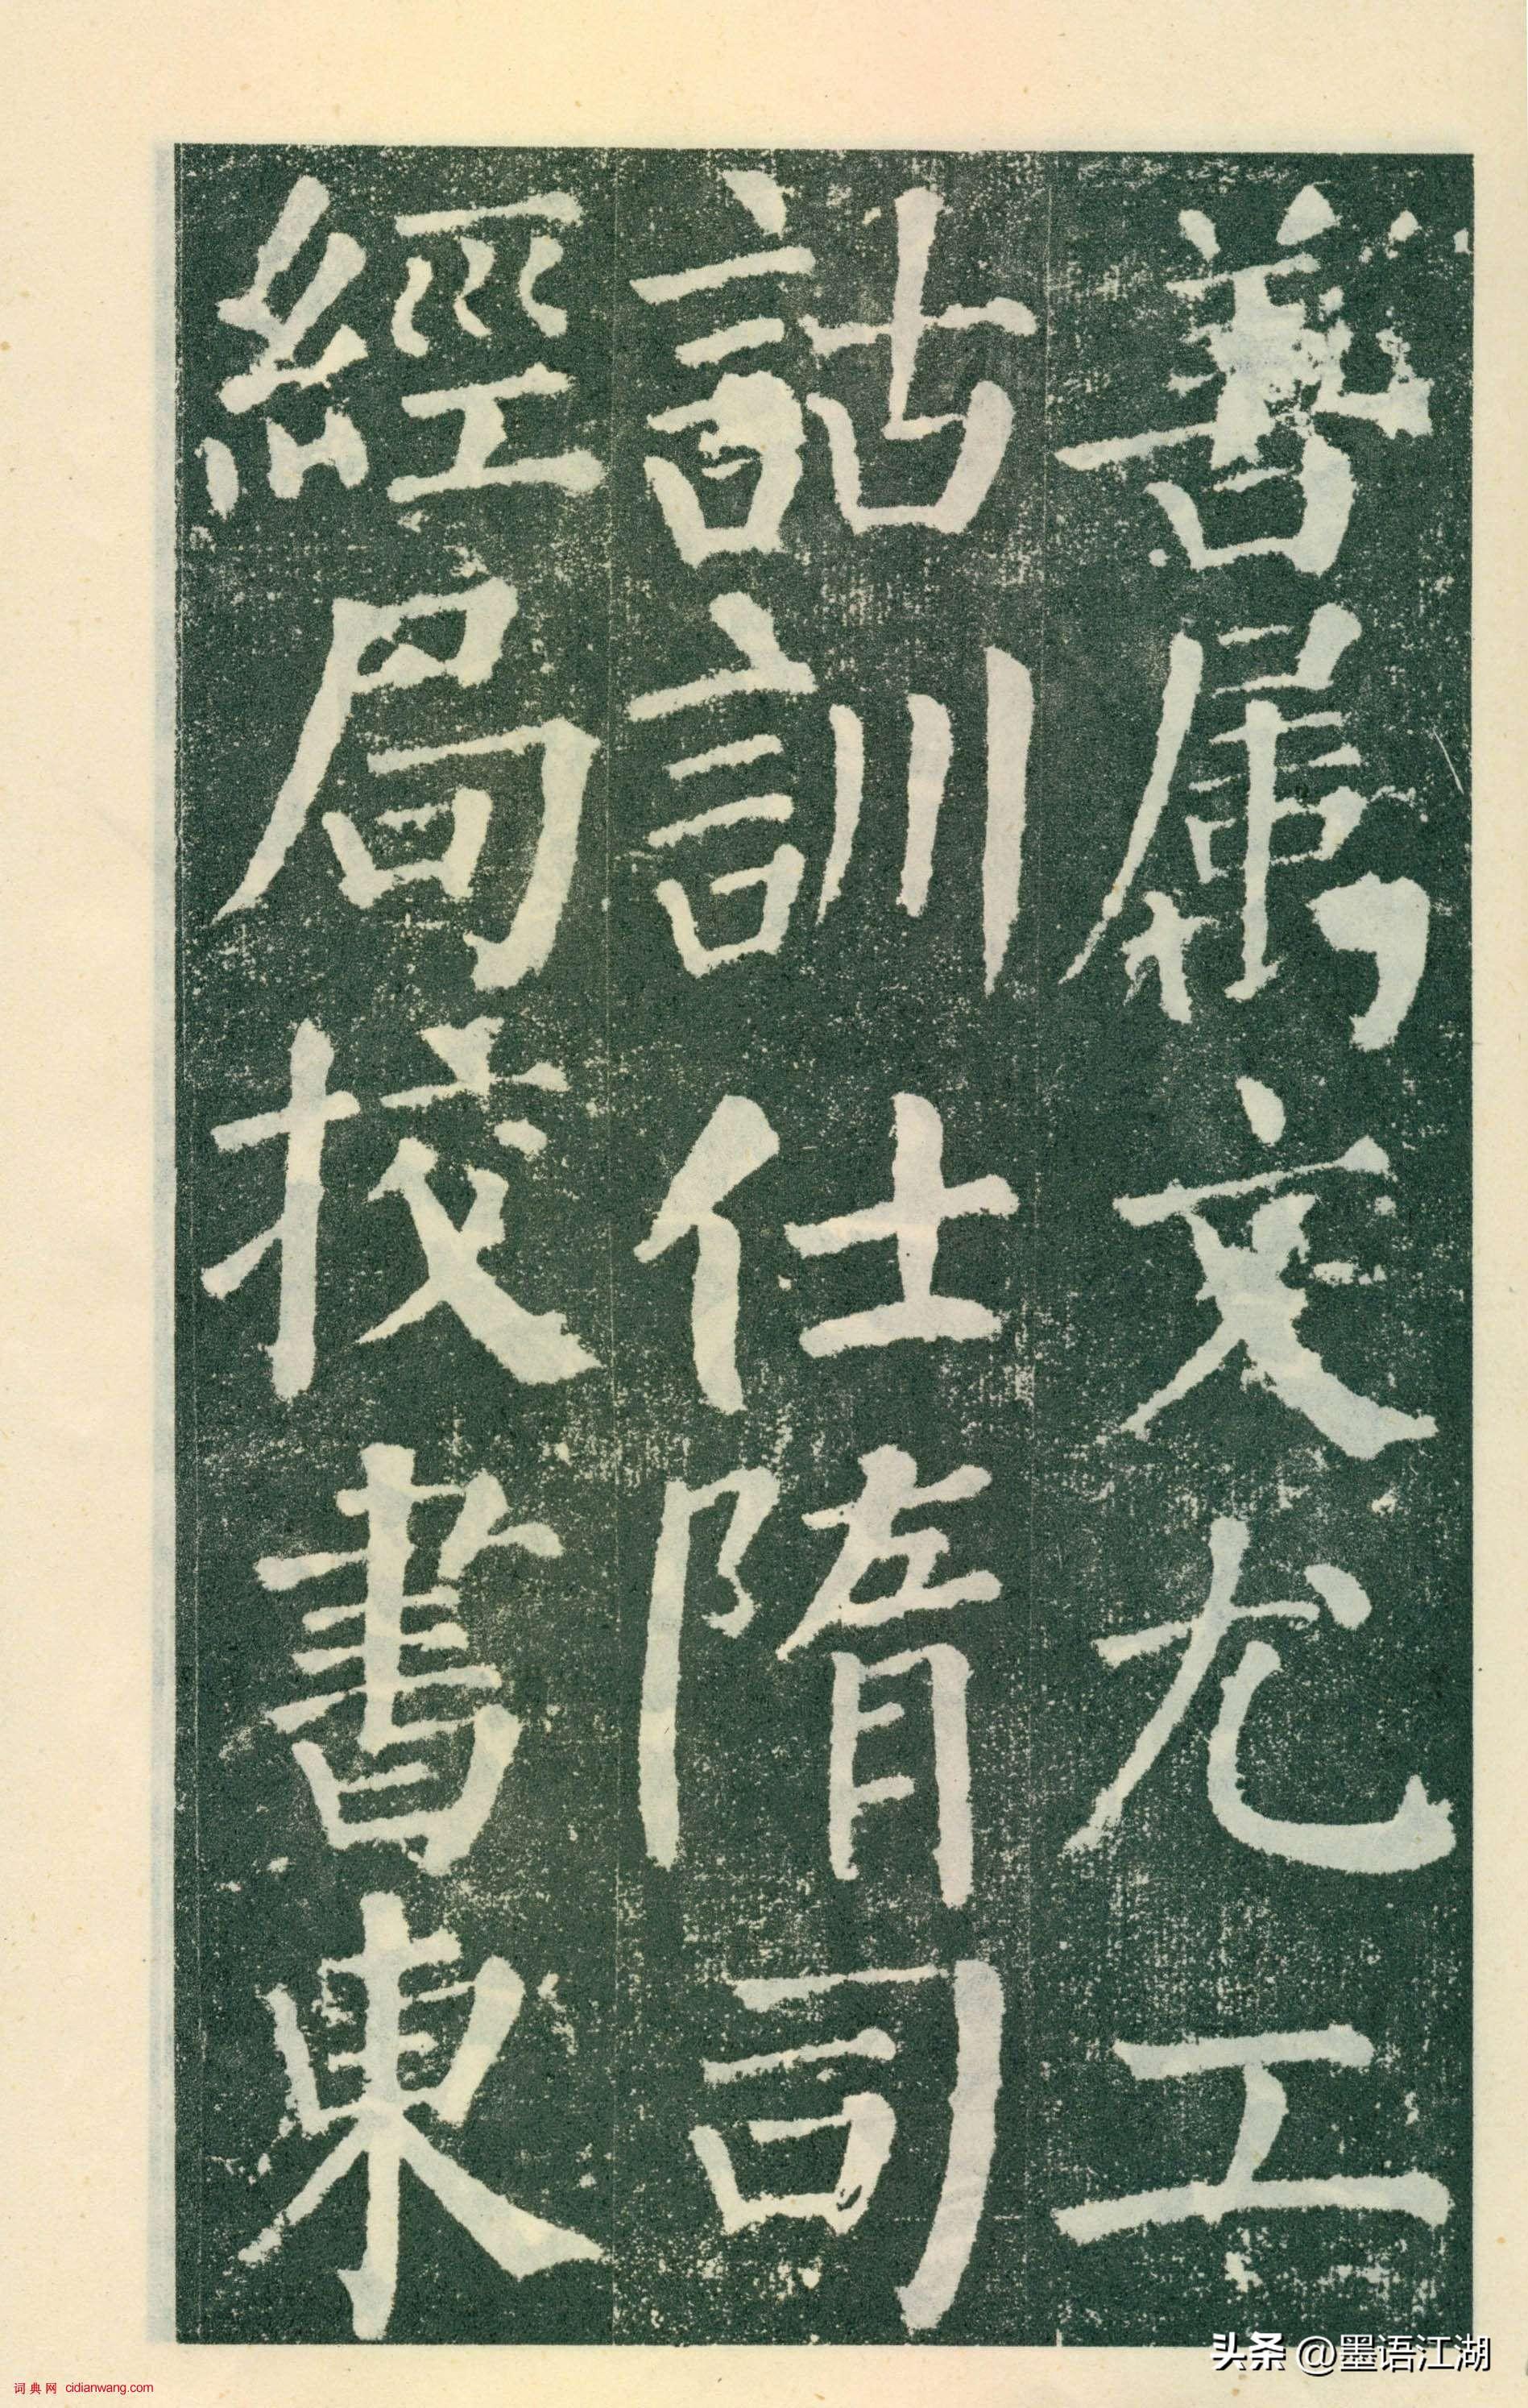 善属文尤工
詁訓仕隋司
經局挍書東
头条 @墨语江湖
词典网 cidianwang.com